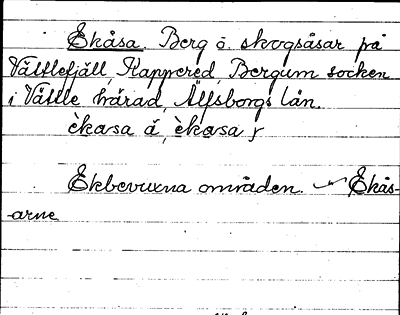 Ekåsa. Berg o. skogsåsar på
Vättlefjäll, Kappered, Bergum socken
i Vättle härad, Älfsborgs län.
èkasa å, èkasa f
Ekbevuxna områden. Ekås-
-arne